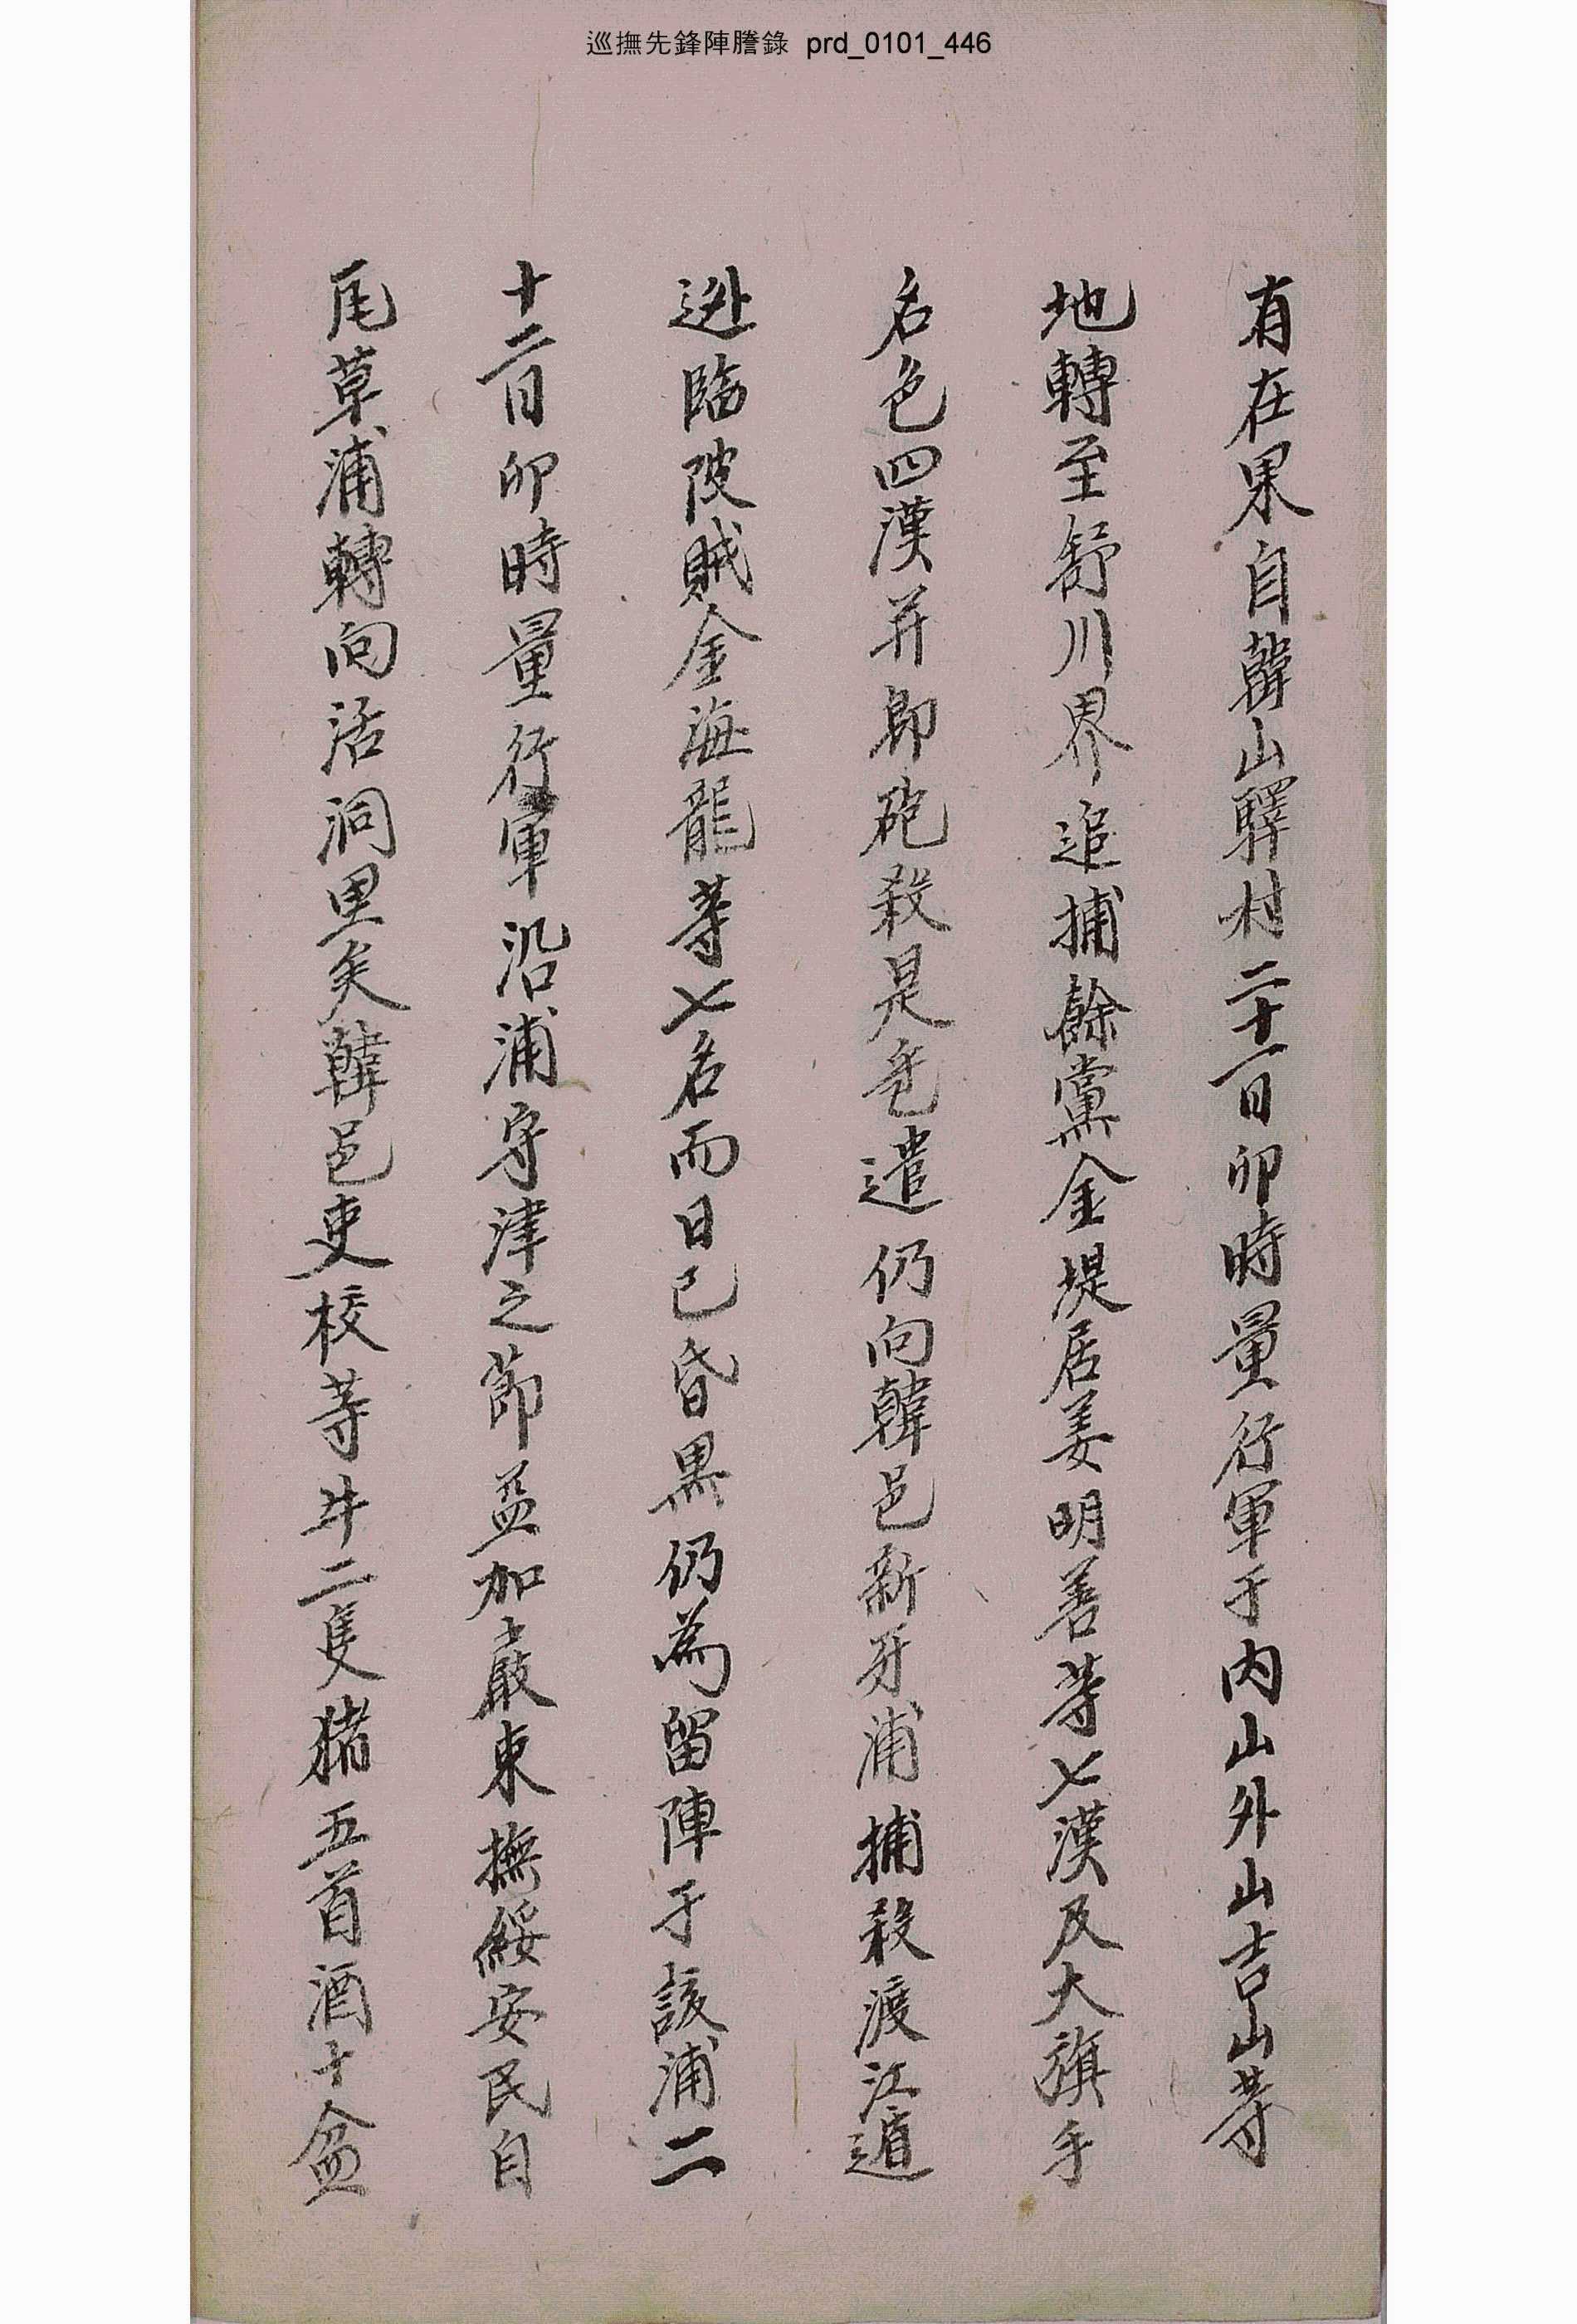 巡撫先鋒陣謄錄 prd_0101_446
有在果自韓山驛村二十一日卯時量行軍于內山外山吉山等
地轉至舒川界追捕餘黨金堤居姜明善等七漢及大旗手
名色四漢并卽砲殺是乭遣仍向韓邑新牙浦捕殺渡江遁
逊臨陂賊金海龍等七名而日已昏黑仍爲留陣于該浦二
十二日卯時量行軍沿浦守津之節益加嚴束撫綏安民自
尾草浦轉向活洞里矣韓邑吏校等牛二隻猪五首酒十盆